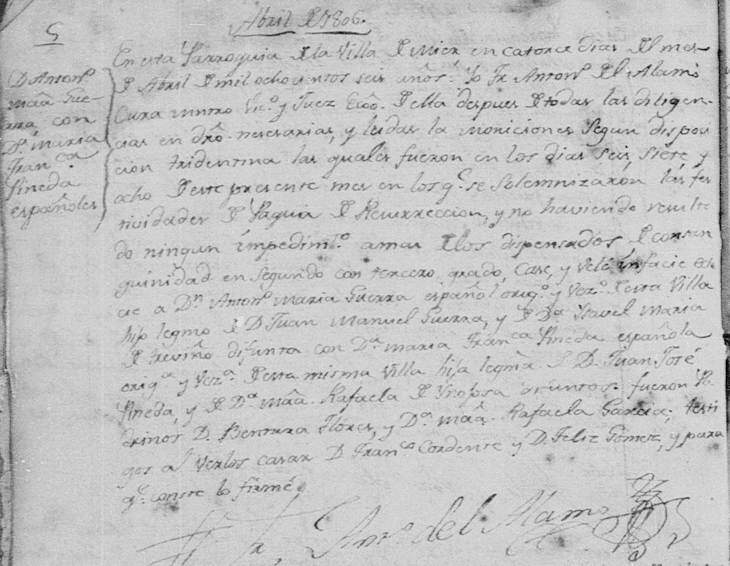 Abril de 1806.
5
D. Anton.º
Mã Gue-
rra con
D.ª Maria
Fran.ca
Pineda
españoles
En esta Parroquia de la Villa de Mier en catorce dias del mes
de Abril de mil ochocientos seis años. Yo Fr. Anton.º del Alamo
Cura mntro Vic.º y Juez Ecô. de ella despues de todas las diligen-
cias en drô. nesesarias, y leidas la moniciones segun dispoci-
cion tridentina las quales fueron en los dias seis, siete y
ocho de este presente mes en los q.e se solemnizaron las fes
tividades de Pasqua de Resurreccion, y no haviendo resulta
do ningun impedim.to amas de los dispensados de consan
guinidad en segundo con tercero grado, Case, y Velé infacie ecle
cie a D.n Anton.º Maria Guerra español orig.º y Vez.º de esta Villa
hijo legmo de D. Juan Manuel Guerra, y de D.ª Isavel Maria
de Treviño difunta con D.ª Maria Fran.ca Pineda española
orig.ª y Vez.ª de esta misma Villa hija legma. de D. Juan José
Pineda, y de D.ª Mãa. Rafaela de Ynojosa difuntos: fueron Pa
drinos D. Bentura Flores, y D.ª Mãa. Rafaela Garcia; testi
gos al verlos casar D. Fran.co Cordente y D. Feliz Gomez, y para
q.e conste lo firmé
Fr. Ant.º del Alamo